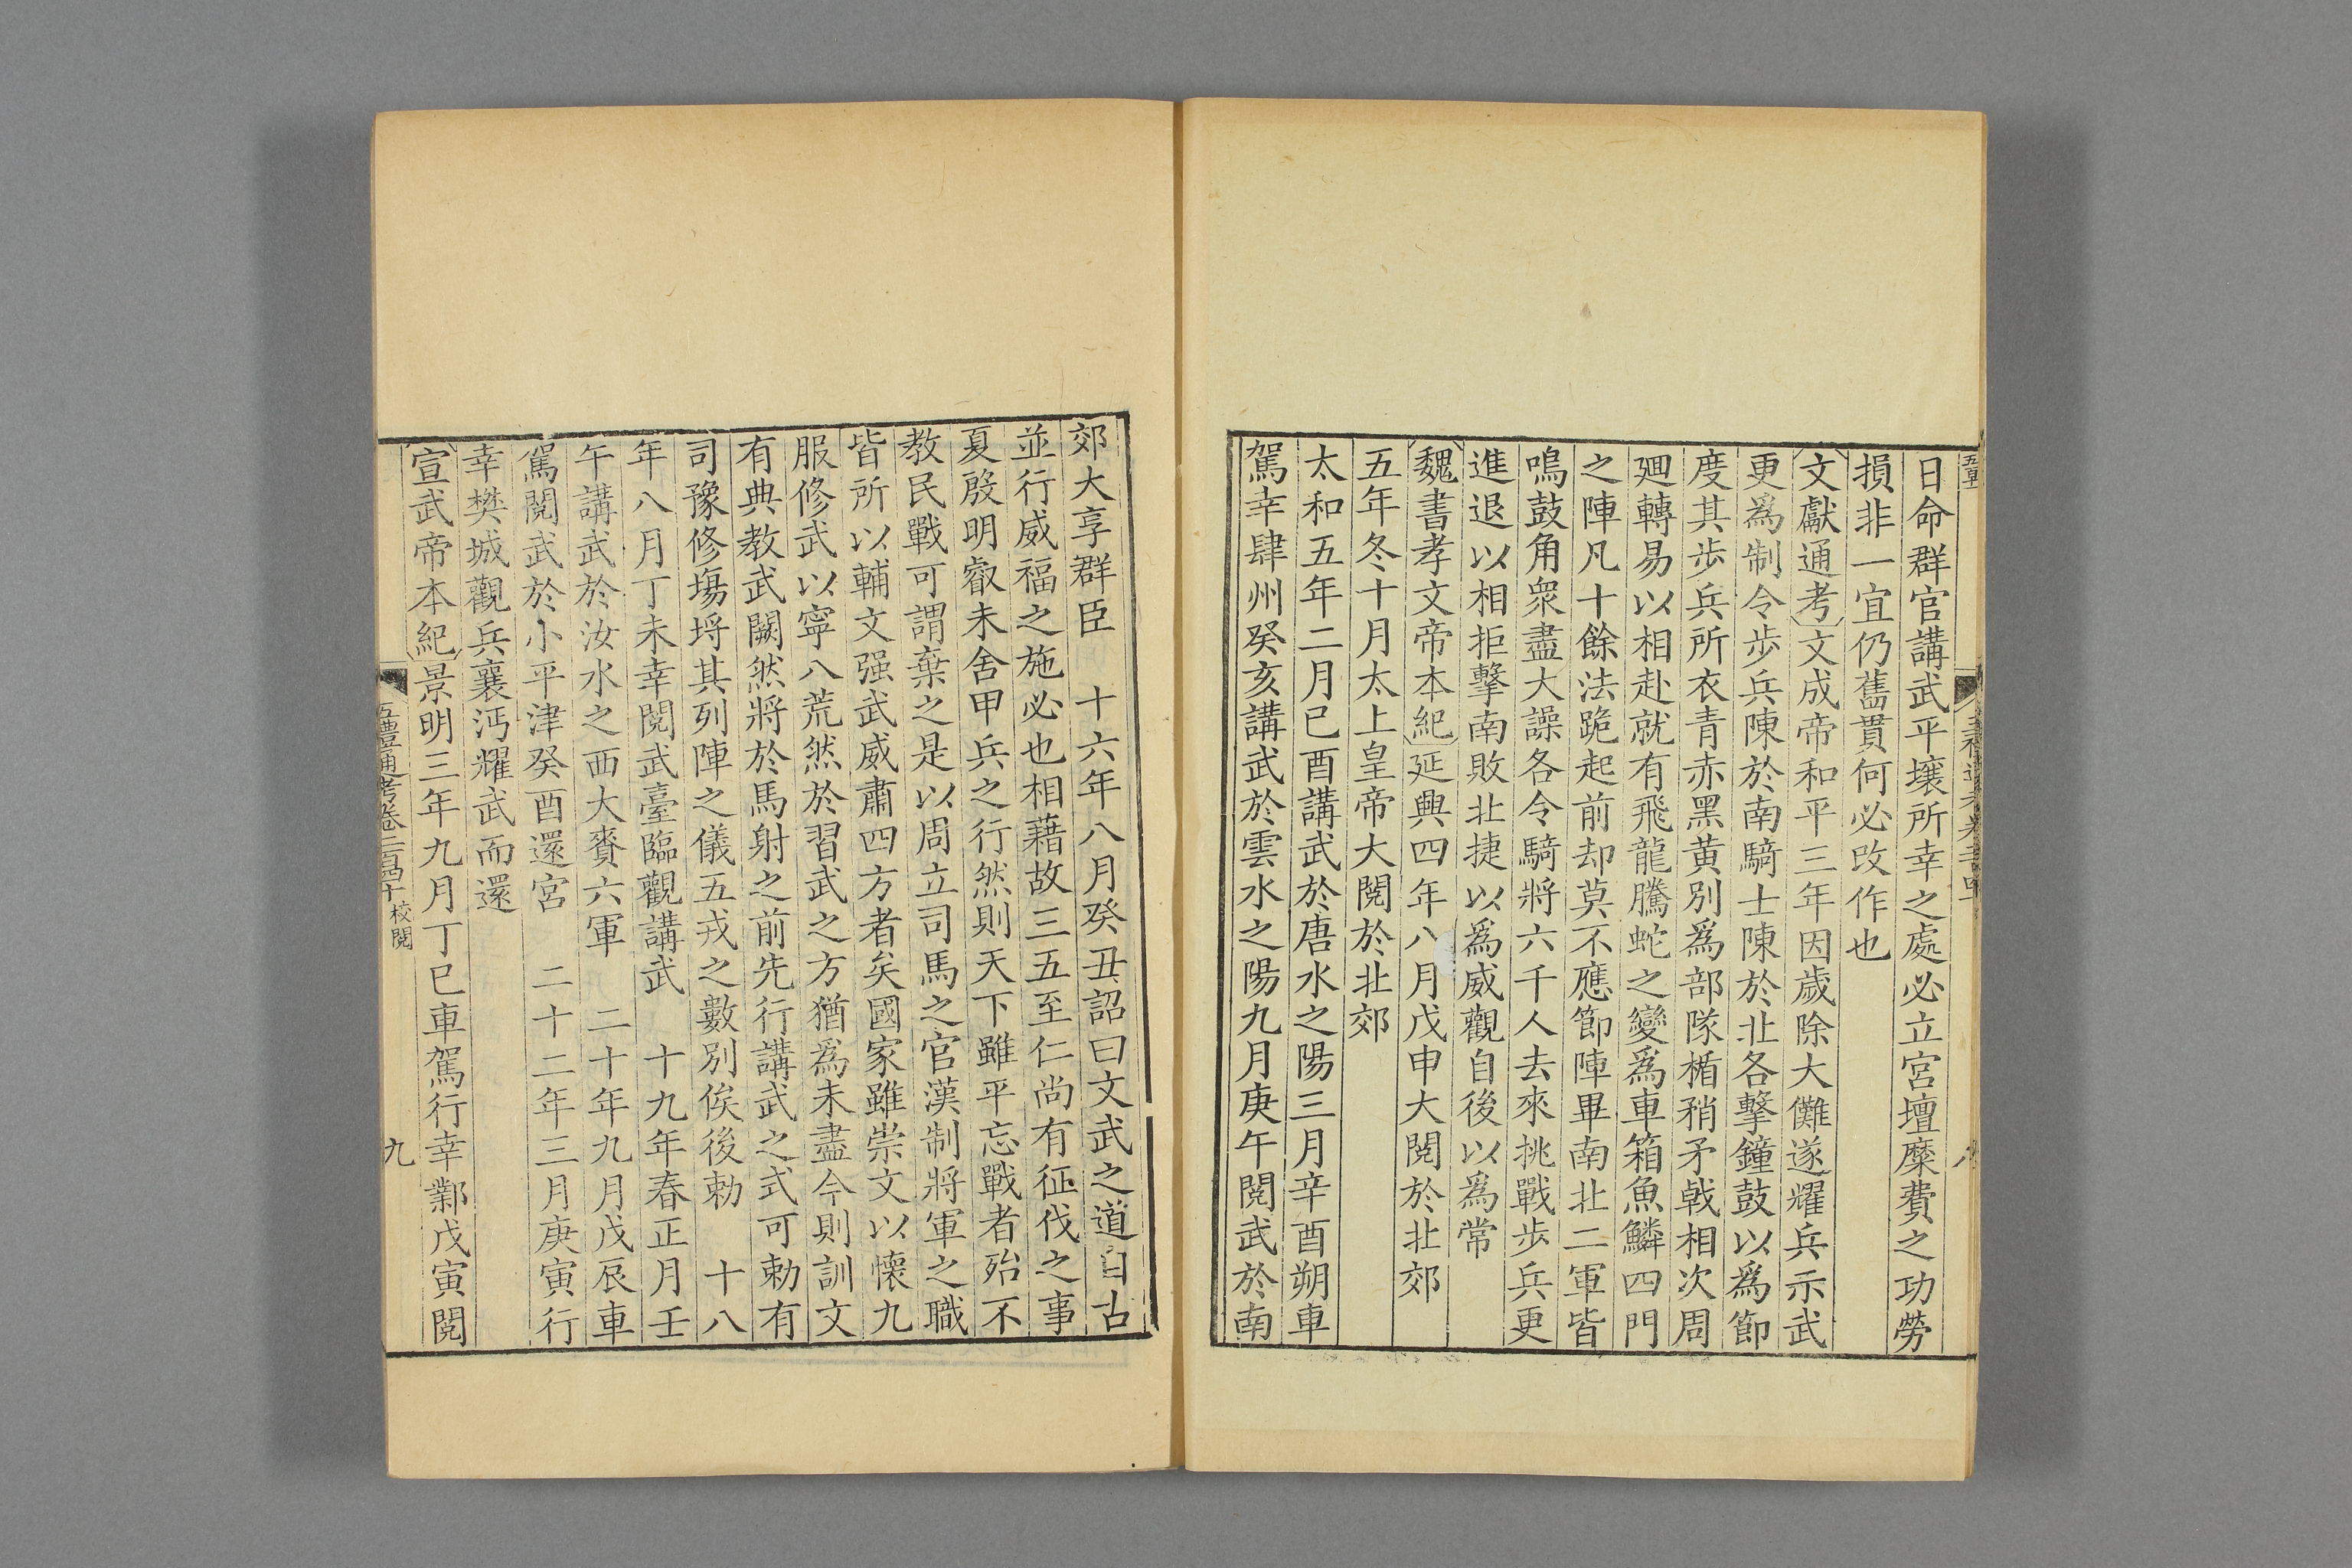 日命群官講武平壤所幸之處必立宮壇糜費之功勞
損非一宜仍舊貫何必改作也
文獻通考文成帝和平三年因歲除大儺遂耀兵示武
更爲制令步兵陳於南騎士陳於北各擊鐘鼓以爲節
度其步兵所衣青赤黑黃別爲部隊楯矟矛戟相次周
廻轉易以相赴就有飛龍騰蛇之變爲車箱魚鱗四門
之陣凡十餘法跪起前却莫不應節陣畢南北二軍皆
鳴鼓角衆盡大譟各令騎將六千人去來挑戰步兵更
進退以相拒擊南敗北捷以爲威觀自後以爲常
魏書孝文帝本紀延興四年八月戊申大閱於北郊
五年冬十月太上皇帝大閱於北郊
太和五年二月已酉講武於唐水之陽三月辛酉朔車
駕幸肆州癸亥講武於雲水之陽九月庚午閱武於南
郊大享群臣 十六年八月癸丑詔曰文武之道自古
並行威福之施必也相藉故三五至仁尚有征伐之事
夏殷明叡未舍甲兵之行然則天下雖平忘戰者殆不
教民戰可謂棄之是以周立司馬之官漢制將軍之職
皆所以輔文强武威肅四方者矣國家雖崇文以懷九
服修武以寧八荒然於習武之方猶爲未盡今則訓文
有典教武闕然將於馬射之前先行講武之式可勅有
司豫修塲埓其列陣之儀五戎之數別俟後勅 十八
年八月丁未幸閱武臺臨觀講武 十九年春正月壬
午講武於汝水之西大賚六軍 二十年九月戊辰車
駕閱武於小平津癸酉還宮 二十二年三月庚寅行
幸樊城觀兵襄沔耀武而還
宣武帝本紀景明三年九月丁巳車駕行幸鄴戊寅閱
五禮通考卷二百四十 校閱
九